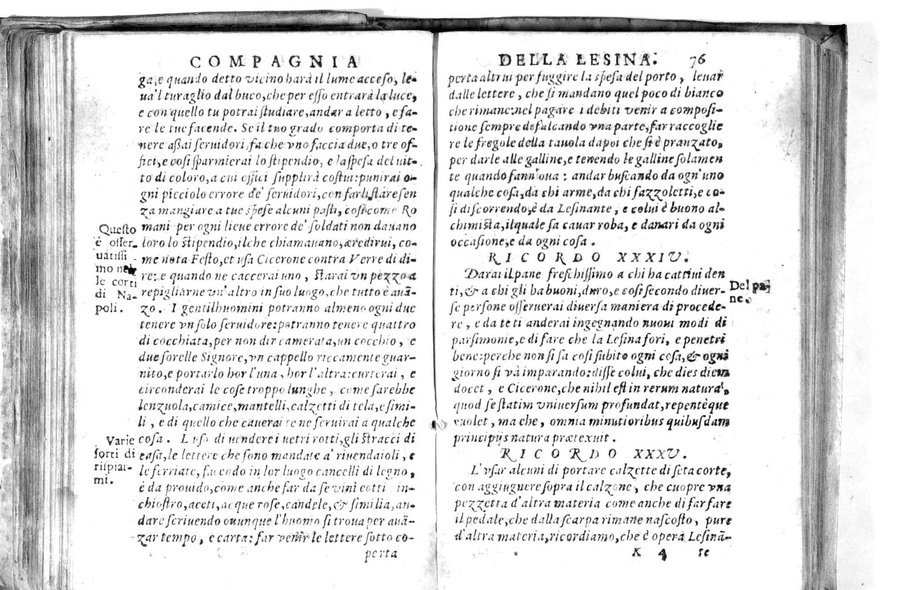 COMPAGNIA
ga, e quando detto vicino harà il lume acceso, le-
ua'l turaglio dal buco, che per esso entrarà la luce,
e con quello tu potrai studiare, andar a letto, e fa-
re le tue facende. Se il tuo grado comporta di te-
nere assai seruidori, fa che vno faccia due, o tre of
fici, e così sparmierai lo stipendio, e la spesa del uit-
to di coloro, a cui offici supplirà costui: punirai o
gni picciolo errore de' seruidori, con farli stare sen-
za mangiare a tue spese alcuni pasti, così come Ro
mani per ogni lieue errore de' soldati non dauano
loro lo stipendio, il che chiamauano, ære dirui, co-
me nota Festo, et vsa Cicerone contra Verre di di-
re: e quando ne caccerai uno, starai un pezzo a
repigliarne vn'altro in suo luogo, che tutto è auā-
zo. I gentilhuomini potranno almeno ogni due
tenere vn solo seruidore: potranno tenere quattro
di cocchiata, per non dir camerata, un cocchio, e
due sorelle Signore, vn cappello riccamente guar-
nito, e portarlo hor l'una, hor l'altra: curterai, e
circonderai le cose troppo lunghe, come sarebbe
lenzuola, camice, mantelli, calzetti di tela, e simi-
li, e di quello che cauerai te ne seruirai a qualche
cosa. L'vso di uendere i uetri rotti, gli stracci di
casa, le lettere che sono mandate a' riuendaioli, e
le ferriate, facendo in lor luogo cancelli di legno,
è da prouido, come anche far da se vini cotti in-
chiostro, aceti, acque rose, candele, & similia, an-
dare scriuendo ouunque l'huomo si troua per auā-
zar tempo, e carta: far venir le lettere sotto co-
perta
Questo
è osser-
uatissi-
mo nel
le corti
di Na-
poli.
Varie
sorti di
rispiar-
mi.
DELLA LESINA. 76
perta altrui per fuggire la spesa del porto, leuar
dalle lettere, che si mandano quel poco di bianco
che rimane: nel pagare i debiti venir a composi-
tione sempre defalcando vna parte, far raccoglie
re le fregole della tauola dapoi che si è pranzato,
per darle alle galline, e tenendo le galline solamen
te quando fann'oua: andar buscando da ogn'uno
qualche cosa, da chi arme, da chi fazzoletti, e co-
si discorrendo, è da Lesinante, e colui è buono al-
chimista, il quale sa cauar roba, e danari da ogni
occasione, e da ogni cosa.
RICORDO XXXIV.
Darai il pane freschissimo a chi ha cattiui den
ti, & a chi gli ha buoni, duro, e così secondo diuer-
se persone osseruerai diuersa maniera di procede-
re, e da te ti anderai ingegnando nuoui modi di
parsimonie, e di fare che la Lesina fori, e penetri
bene: perche non si sa così subito ogni cosa, & ogni
giorno si và imparando: disse colui, che dies diem
docet, e Cicerone, che nihil est in rerum natura,
quod se statim vniuersum profundat, repenteque
euolet, ma che, omnia minutioribus quibusdam
principijs natura prætexuit.
Del pa-
ne.
RICORDO XXXV.
L'vsar alcuni di portare calzette di seta corte,
con aggiugnere sopra il calzone, che cuopre vna
pezzetta d'altra materia come anche di far fare
il pedale, che dalla scarpa rimane nascosto, pure
d'altra materia, ricordiamo, che è opera Lesinā-
K 4 te